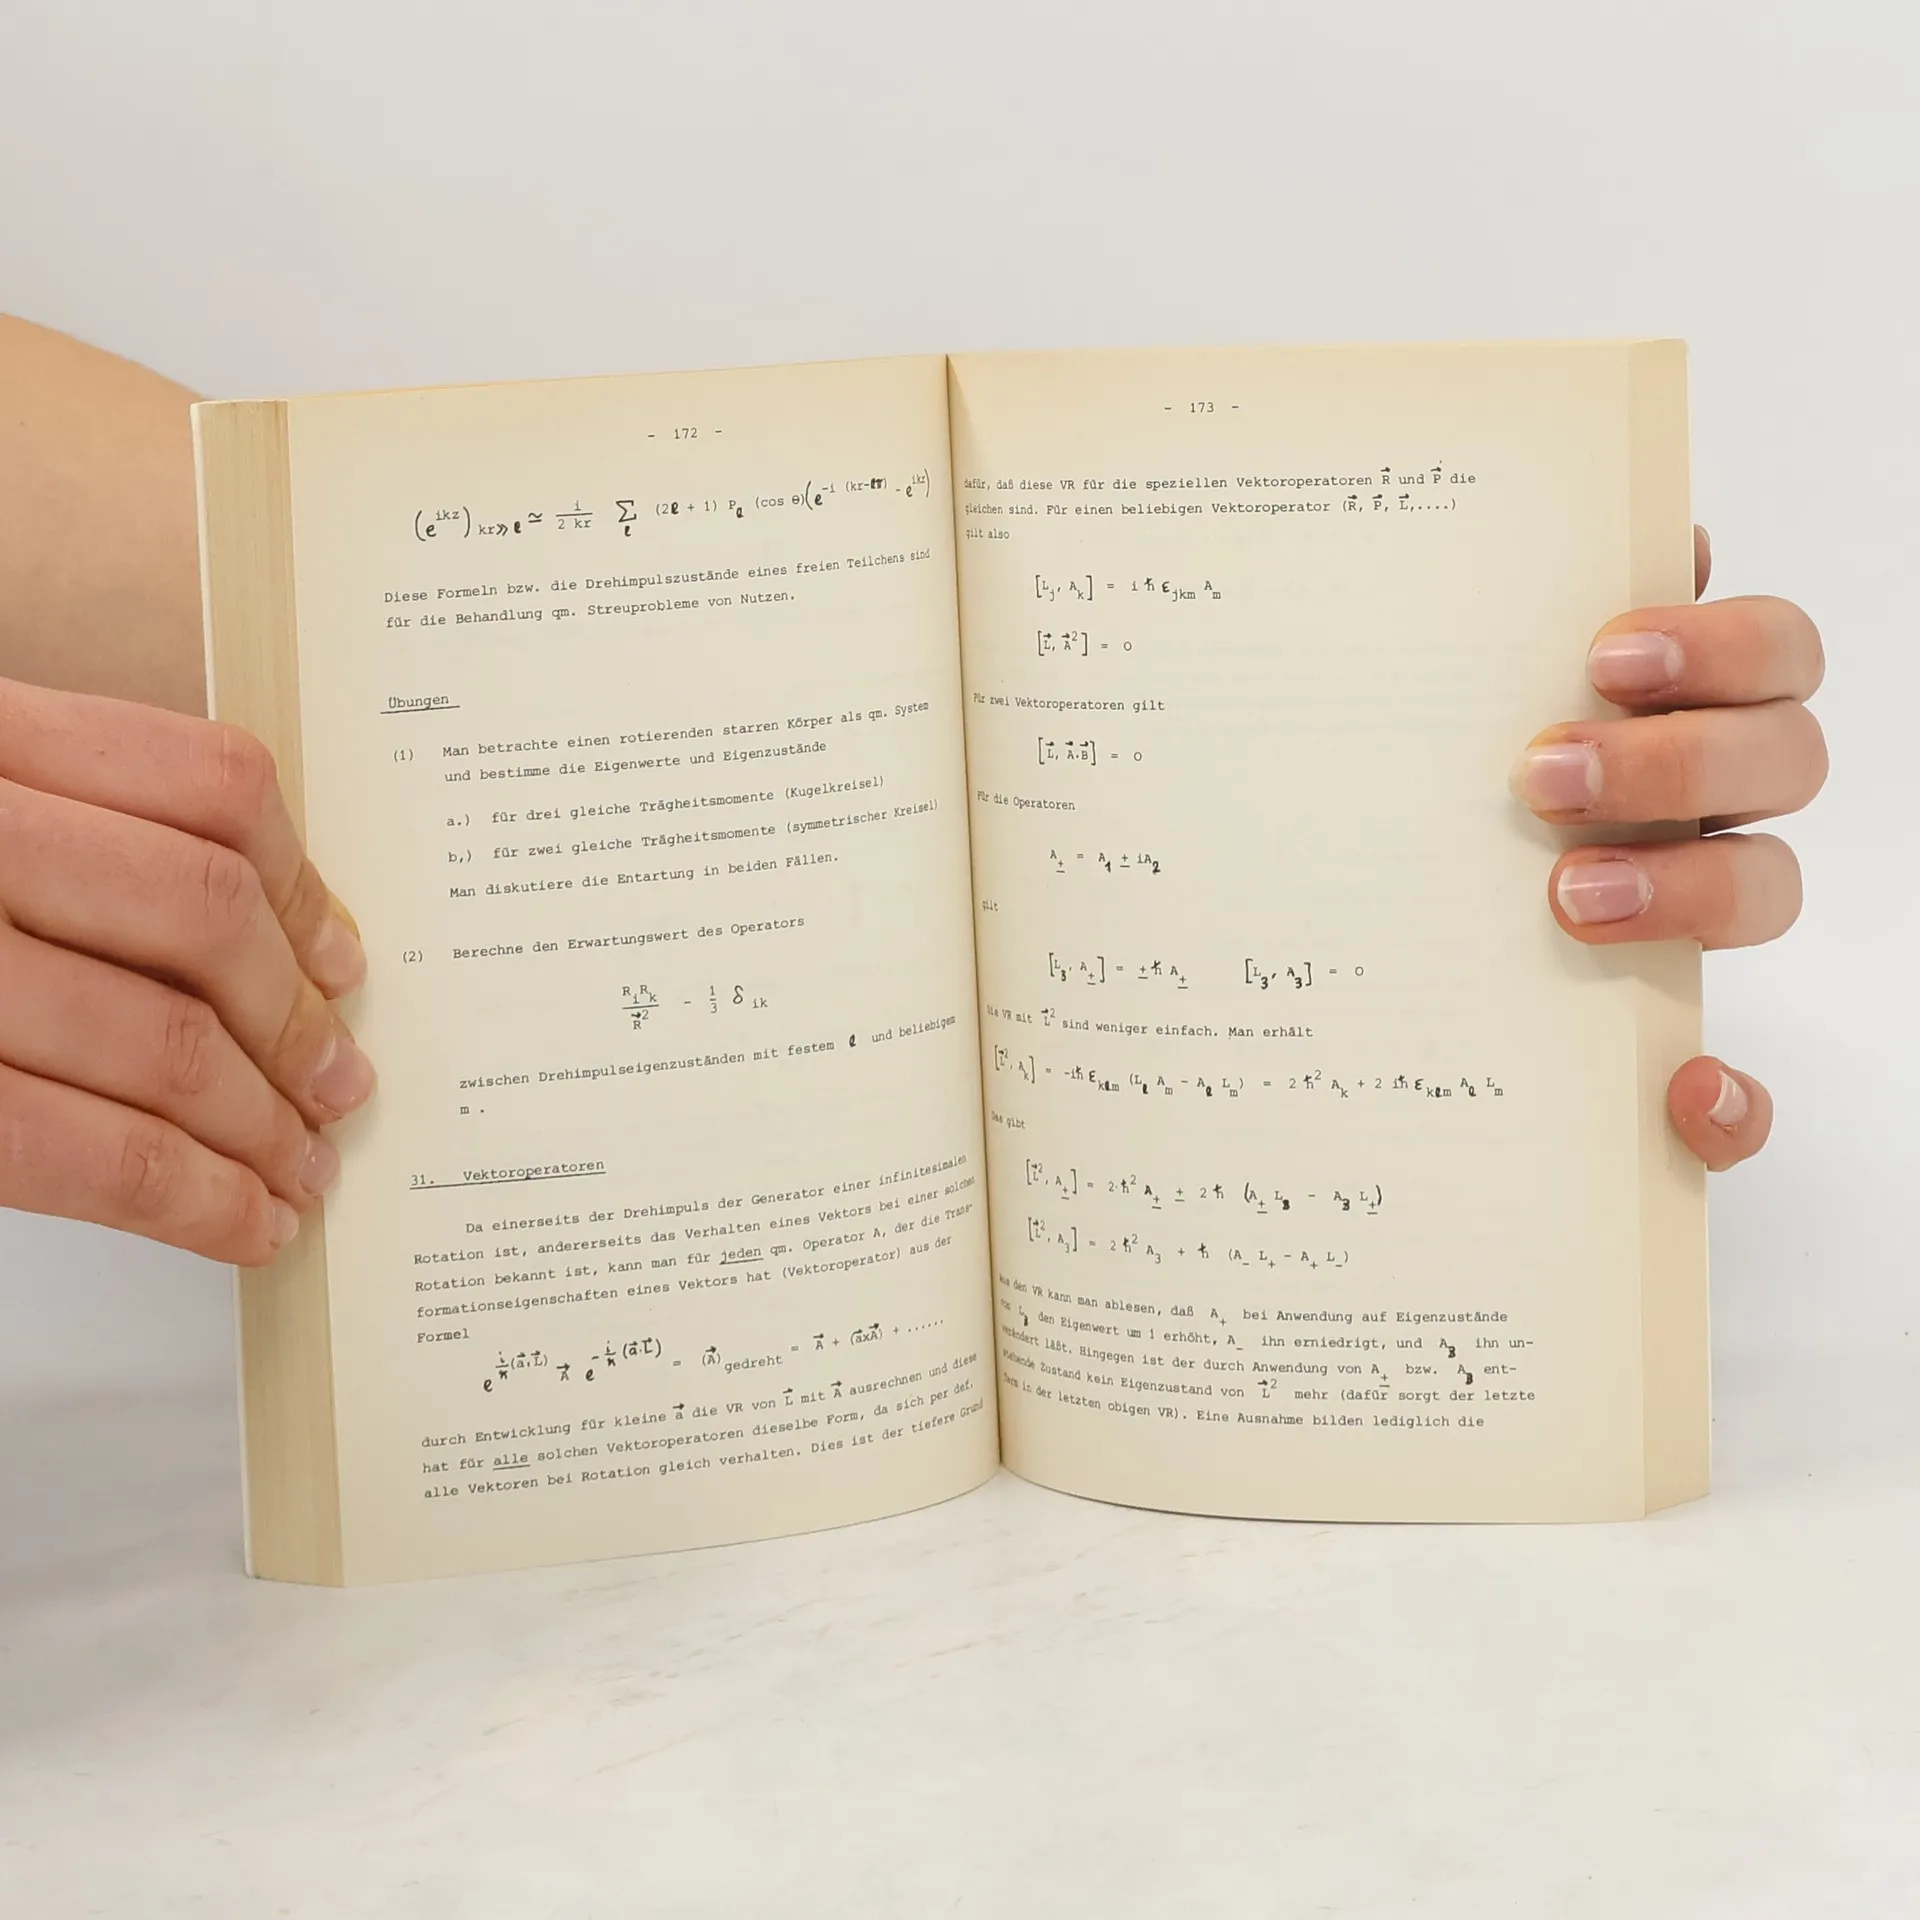 - 172 -
(e^{ikz})_{kr≫ℓ} ≃ i/(2 kr) Σ_ℓ (2ℓ + 1) P_ℓ (cos θ)(e^{-i (kr-ℓπ)} - e^{ikr})
Diese Formeln bzw. die Drehimpulszustände eines freien Teilchens sind
für die Behandlung qm. Streuprobleme von Nutzen.
Übungen
(1) Man betrachte einen rotierenden starren Körper als qm. System
und bestimme die Eigenwerte und Eigenzustände
a.) für drei gleiche Trägheitsmomente (Kugelkreisel)
b,) für zwei gleiche Trägheitsmomente (symmetrischer Kreisel)
Man diskutiere die Entartung in beiden Fällen.
(2) Berechne den Erwartungswert des Operators
R_i R_k / R⃗² - 1/3 δ_{ik}
zwischen Drehimpulseigenzuständen mit festem ℓ und beliebigem
m .
31. Vektoroperatoren
Da einerseits der Drehimpuls der Generator einer infinitesimalen
Rotation ist, andererseits das Verhalten eines Vektors bei einer solchen
Rotation bekannt ist, kann man für jeden qm. Operator A, der die Trans-
formationseigenschaften eines Vektors hat (Vektoroperator) aus der
Formel
e^{i/ħ (a⃗·L⃗)} A⃗ e^{-i/ħ (a⃗·L⃗)} = (A⃗)_{gedreht} = A⃗ + (a⃗xA⃗) + ......
durch Entwicklung für kleine a⃗ die VR von L⃗ mit A⃗ ausrechnen und diese
hat für alle solchen Vektoroperatoren dieselbe Form, da sich per def.
alle Vektoren bei Rotation gleich verhalten. Dies ist der tiefere Grund
- 173 -
dafür, daß diese VR für die speziellen Vektoroperatoren R⃗ und P⃗ die
gleichen sind. Für einen beliebigen Vektoroperator (R⃗, P⃗, L⃗,....)
gilt also
[L_j, A_k] = i ħ ε_{jkm} A_m
[L⃗, A⃗²] = 0
Für zwei Vektoroperatoren gilt
[L⃗, A⃗·B⃗] = 0
Für die Operatoren
A_± = A_1 ± iA_2
gilt
[L_3, A_±] = ±ħ A_± [L_3, A_3] = 0
Die VR mit L⃗² sind weniger einfach. Man erhält
[L⃗², A_k] = -iħ ε_{kℓm} (L_ℓ A_m - A_ℓ L_m) = 2 ħ² A_k + 2 iħ ε_{kℓm} A_ℓ L_m
Das gibt
[L⃗², A_±] = 2·ħ² A_± ± 2 ħ (A_± L_3 - A_3 L_±)
[L⃗², A_3] = 2 ħ² A_3 + ħ (A_- L_+ - A_+ L_-)
Aus den VR kann man ablesen, daß A_+ bei Anwendung auf Eigenzustände
von L_3 den Eigenwert um 1 erhöht, A_- ihn erniedrigt, und A_3 ihn un-
verändert läßt. Hingegen ist der durch Anwendung von A_± bzw. A_3 ent-
stehende Zustand kein Eigenzustand von L⃗² mehr (dafür sorgt der letzte
Term in der letzten obigen VR). Eine Ausnahme bilden lediglich die